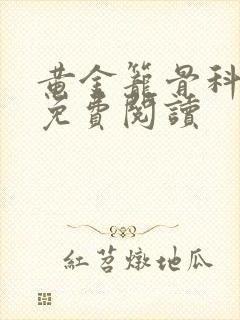 黃金籠骨科
免費閱讀
紅苕燉地瓜